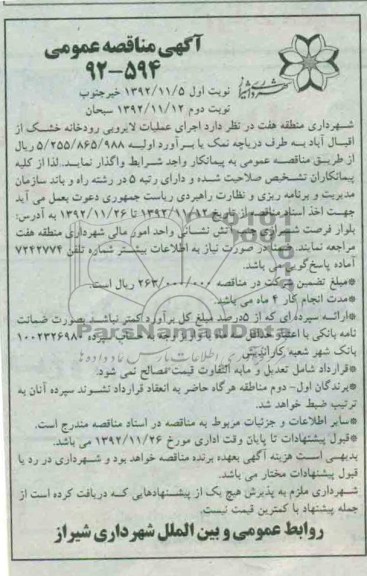 آگهی مناقصه عمومی
۹۲-۵۹۴
شهرداری شیراز
نوبت اول ۱۳۹۲/۱۱/۵ خبرجنوب
نوبت دوم ۱۳۹۲/۱۱/۱۲ سبحان
شهرداری منطقه هفت در نظر دارد اجرای عملیات لایروبی رودخانه خشک از
اقبال آباد به طرف دریاچه نمک با برآورد اولیه ۵/۲۵۵/۸۶۵/۹۸۸ ریال
از طریق مناقصه عمومی به پیمانکار واجد شرایط واگذار نماید. لذا از کلیه
پیمانکاران تشخیص صلاحیت شده و دارای رتبه ۵ در رشته راه و باند سازمان
مدیریت و برنامه ریزی و نظارت راهبردی ریاست جمهوری دعوت بعمل می آید
جهت اخذ اسناد مناقصه از تاریخ ۱۳۹۲/۱۱/۱۲ تا ۱۳۹۲/۱۱/۲۶ به آدرس:
بلوار فرصت شیرازی جنب آتش نشانی واحد امور مالی شهرداری منطقه هفت
مراجعه نمایند. ضمنا در صورت نیاز به اطلاعات بیشتر شماره تلفن ۷۲۴۲۷۷۴
آماده پاسخ گویی می باشد.
*مبلغ تضمین شرکت در مناقصه ۲۶۳/۰۰۰/۰۰۰ ریال است.
*مدت انجام کار ۴ ماه می باشد.
*ارائه سپرده ای که از ۵درصد مبلغ کل برآورد کمتر نباشد بصورت ضمانت
نامه بانکی با اعتبار حداقل سه ماه یا واریز وجه به حساب سپرده ۱۰۰۲۳۲۶۹۸۰
بانک شهر شعبه کاراندیش
*قرارداد شامل تعدیل و مابه التفاوت قیمت مصالح نمی شود.
*برندگان اول- دوم مناقصه هرگاه حاضر به انعقاد قرارداد نشوند سپرده آنان به
ترتیب ضبط خواهد شد.
*سایر اطلاعات و جزئیات مربوط به مناقصه در اسناد مناقصه مندرج است.
*قبول پیشنهادات تا پایان وقت اداری مورخ ۱۳۹۲/۱۱/۲۶ می باشد.
بدیهی است هزینه آگهی بعهده برنده مناقصه خواهد بود و شهرداری در رد یا
قبول پیشنهادات مختار می باشد.
شهرداری ملزم به پذیرش هیچ یک از پیشنهادهایی که دریافت کرده است از
جمله پیشنهاد با کمترین قیمت نیست.
روابط عمومی و بین الملل شهرداری شیراز
ParsNamadData